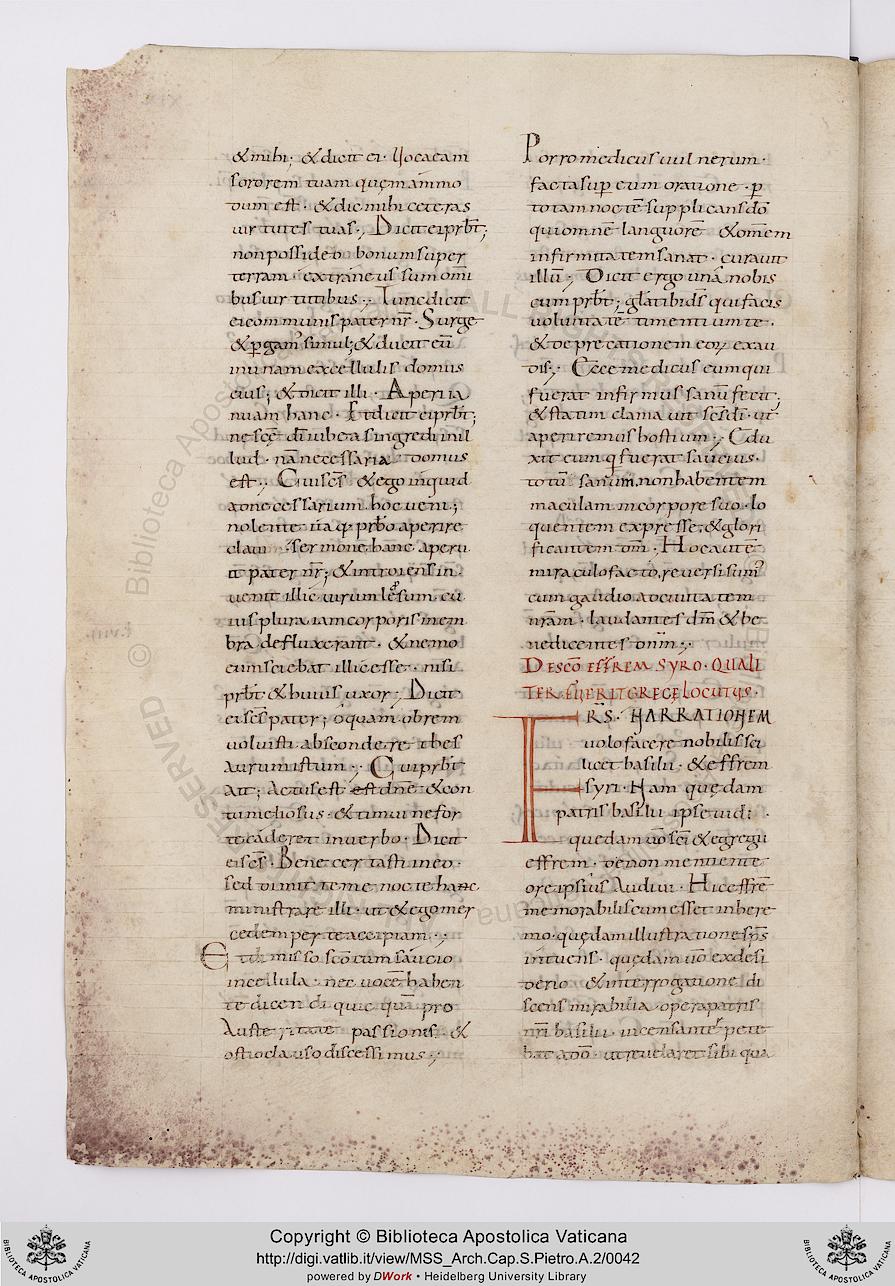 & mihi; & dicit ei. Uoca eam
sororem tuam quem ammo
dum est. & dic mihi ceteras
uirtutes tuas., Dicit ei prbt;
non possideo bonum super
terram. extraneus sum omi
bus uirtutibus., Tunc dicit
ei communis pater nr. Surge
& pgam simul; & ducit eū
in unam excellulis domus
eius; & dicit illi. Aperi ia
nuam hanc. Et dicit ei prbt;
ne sce di iubeas ingredi in il
lud. nā necessaria domus
est., Cui scs & ego inquid
ad necessarium hoc ueni;
nolente prbo aperire
claui sermone hanc aperu
it pater nr; & introiens in
uenit illic uirum lesum. cu
ius plura iam corporis mem
bra defluxerant. & nemo
eum sciebat illic esse. nisi
prbt & huius uxor., Dicit
ei scs pater; o quam obrem
uoluisti abscondere thes
aurum istum., Cui prbt
ait; Actus est est dne & con
tumeliosus. & timui ne for
te caderet in uerbo. Dicit
ei scs. Bene certasti in eo.
sed dimitte me nocte hanc
ministrare illi. ut & ego mer
cedem per te accipiam.,
Et dimisso sco cum saucio
in cellula. nec uocē haben
te dicendi quicquā pro
Austeritate passionis. &
ostio clauso discessimus.,
Porro medicus uulnerum.
facta sup eum oratione. p
totam noctē supplicans dō
qui omnē languorē & omem
infirmitatem sanat. curauit
illū., Dicit ergo unā nobis
cum prbt; glā tibi dns qui facis
uoluntatē timentium te.
& deprecationem eorum exau
dis., Ecce medicus eum qui
fuerat infirmus sanū fecit;
& statim clamauit scs di. ut
aperiremus hostium., Edu
xit eum q fuerat saucius.
totū sanum, non habentem
maculam in corpore suo. lo
quentem expresse, & glori
ficantem dm. Hoc autē
miraculo facto, reuersi sum
cum gaudio ad ciuitatem
nram. laudantes dm & be
nedicentes dnm.,
DE SCŌ EFFREM SYRO. QUALI
TER FUERIT GRECE LOCUTUS.
FRS. NARRATIONEM
uolo facere nobilis sci
licet basilii. & effrem
syri. Nam quedam
patris basilii ipse uidi.
quedam uō sci & egregii
effrem. de non mentiente
ore ipsius Audiui. Hic effrē
memorabilis cum esset in here
mo. quedam illustratione sps
intuens. quedam uō ex desi
derio & interrogatione di
scens mirabilia opera patris
nri basilii. incessanter pete
bat adō. ut reuelaret sibi qua
Copyright © Biblioteca Apostolica Vaticana
http://digi.vatlib.it/view/MSS_Arch.Cap.S.Pietro.A.2/0042
powered by DWork • Heidelberg University Library